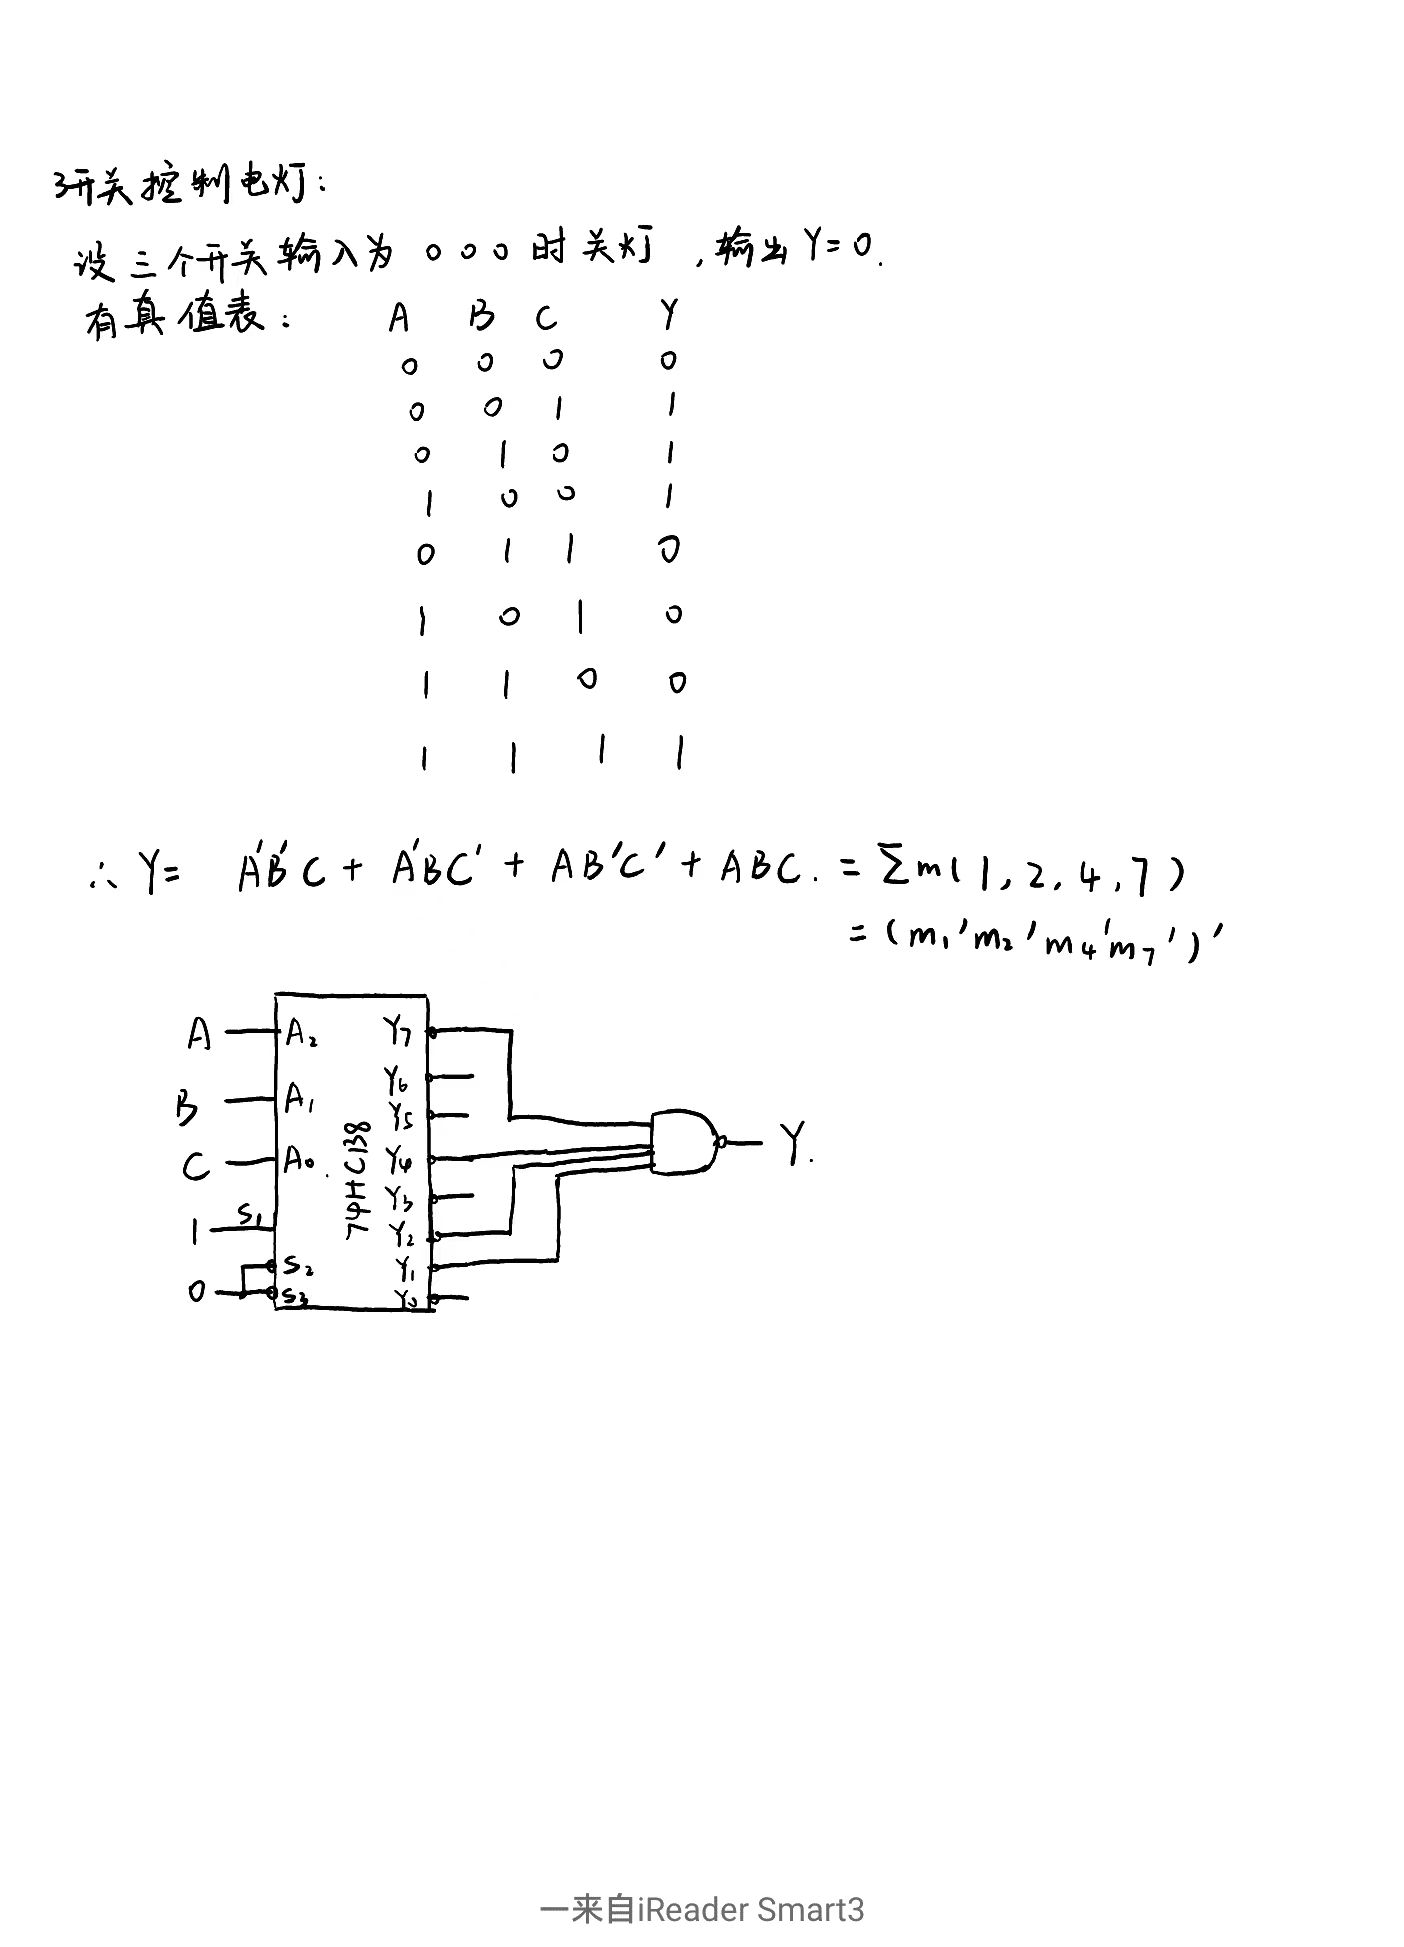 3开关控制电灯:
设三个开关输入为 000时关灯,输出Y=0.
有真值表: A B C Y
0 0 0 0
0 0 1 1
0 1 0 1
1 0 0 1
0 1 1 0
1 0 1 0
1 1 0 0
1 1 1 1
∴ Y= A'B'C + A'BC' + AB'C' + ABC. = Σm(1,2,4,7)
= (m₁'m₂'m₄'m₇')'
A A₂ Y₇
Y₆
B A₁ Y₅
C A₀ 74HC138 Y₄ Y.
Y₃
1 S₁ Y₂
S₂ Y₁
0 S₃ Y₀
一来自iReader Smart3